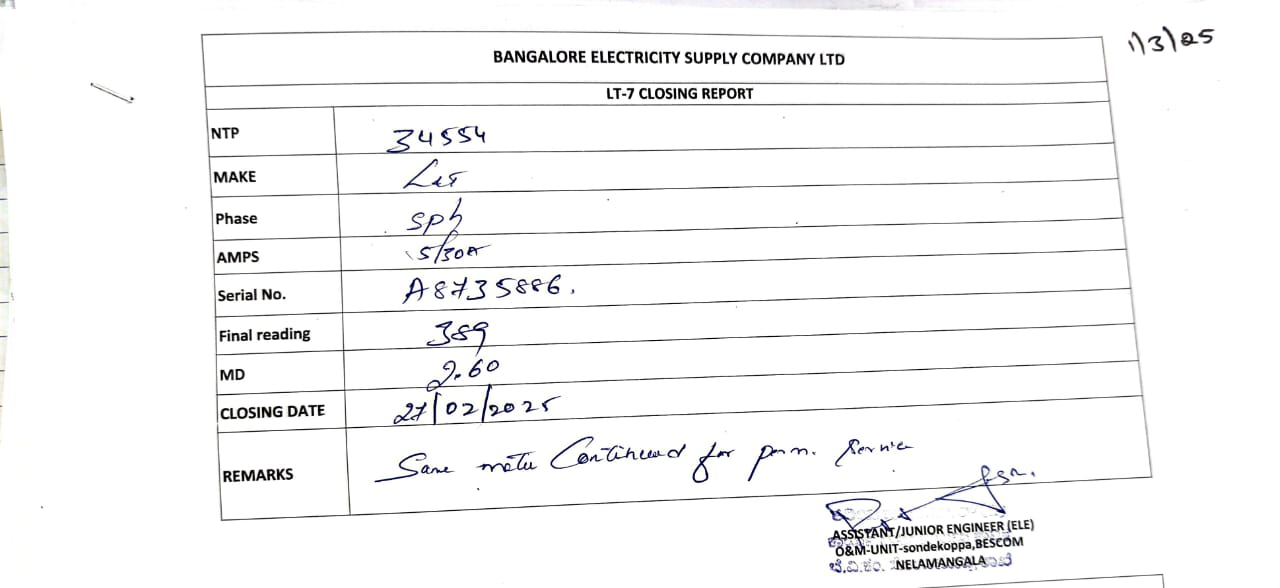 1/3/25
BANGALORE ELECTRICITY SUPPLY COMPANY LTD
LT-7 CLOSING REPORT
NTP 34554
MAKE L&T
Phase Sph
AMPS 5/30A
Serial No. A8735886.
Final reading 389
MD 2.60
CLOSING DATE 27/02/2025
REMARKS Same meter Continued for perm. Service
ASSISTANT/JUNIOR ENGINEER (ELE)
O&M-UNIT-sondekoppa,BESCOM
ಬೆ.ವಿ.ಕಂ. NELAMANGALA